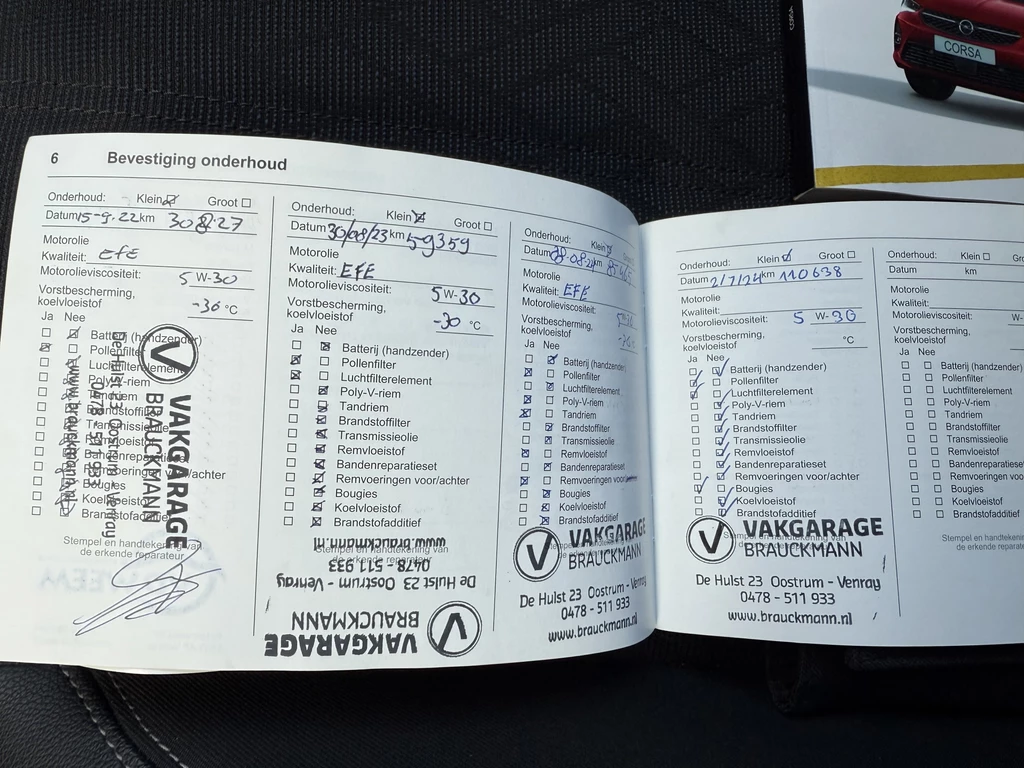 CORSA
6 Bevestiging onderhoud
Onderhoud: Klein Groot
Datum 15-9-22 km
Motorolie
Kwaliteit: EFE
Motorolieviscositeit: 5 W-30
Vorstbescherming,
koelvloeistof -30 °C
Ja Nee
Batterij (handzender)
Pollenfilter
Luchtfilterelement
Poly-V-riem
Tandriem
Brandstoffilter
Transmissieolie
Remvloeistof
Bandenreparatieset
Remvoeringen voor/achter
Bougies
Koelvloeistof
Brandstofadditief
Stempel en handtekening van
de erkende reparateur
VAKGARAGE
BRAUCKMANN
De Hulst 23 Oostrum - Venray
0478 - 511 933
www.brauckmann.nl
Onderhoud: Klein Groot
Datum 30/08/23 km 59359
Motorolie
Kwaliteit: EFE
Motorolieviscositeit: 5 W-30
Vorstbescherming,
koelvloeistof -30 °C
Ja Nee
Batterij (handzender)
Pollenfilter
Luchtfilterelement
Poly-V-riem
Tandriem
Brandstoffilter
Transmissieolie
Remvloeistof
Bandenreparatieset
Remvoeringen voor/achter
Bougies
Koelvloeistof
Brandstofadditief
Stempel en handtekening van
de erkende reparateur
VAKGARAGE
BRAUCKMANN
De Hulst 23 Oostrum - Venray
0478 - 511 933
www.brauckmann.nl
Onderhoud: Klein Groot
Datum km
Motorolie
Kwaliteit: EFE
Motorolieviscositeit:
Vorstbescherming,
koelvloeistof
Ja Nee
Batterij (handzender)
Pollenfilter
Luchtfilterelement
Poly-V-riem
Tandriem
Brandstoffilter
Transmissieolie
Remvloeistof
Bandenreparatieset
Remvoeringen voor/
Bougies
Koelvloeistof
Brandstofadditief
VAKGARAGE
BRAUCKMANN
De Hulst 23 Oostrum - Venray
0478 - 511 933
www.brauckmann.nl
Onderhoud: Klein Groot
Datum 2/7/24 km 110638
Motorolie
Kwaliteit:
Motorolieviscositeit: 5 W-30
Vorstbescherming,
koelvloeistof °C
Ja Nee
Batterij (handzender)
Pollenfilter
Luchtfilterelement
Poly-V-riem
Tandriem
Brandstoffilter
Transmissieolie
Remvloeistof
Bandenreparatieset
Remvoeringen voor/achter
Bougies
Koelvloeistof
Brandstofadditief
Stempel en handtekening van
de erkende reparateur
VAKGARAGE
BRAUCKMANN
De Hulst 23 Oostrum - Venray
0478 - 511 933
www.brauckmann.nl
Onderhoud: Klein
Datum km
Motorolie
Kwaliteit:
Motorolieviscositeit: W-
Vorstbescherming,
koelvloeistof
Ja Nee
Batterij (handzender)
Pollenfilter
Luchtfilterelement
Poly-V-riem
Tandriem
Brandstoffilter
Transmissieolie
Remvloeistof
Bandenreparatieset
Remvoeringen voor/
Bougies
Koelvloeistof
Brandstofadditief
Stempel en handtekening
de erkende reparateur